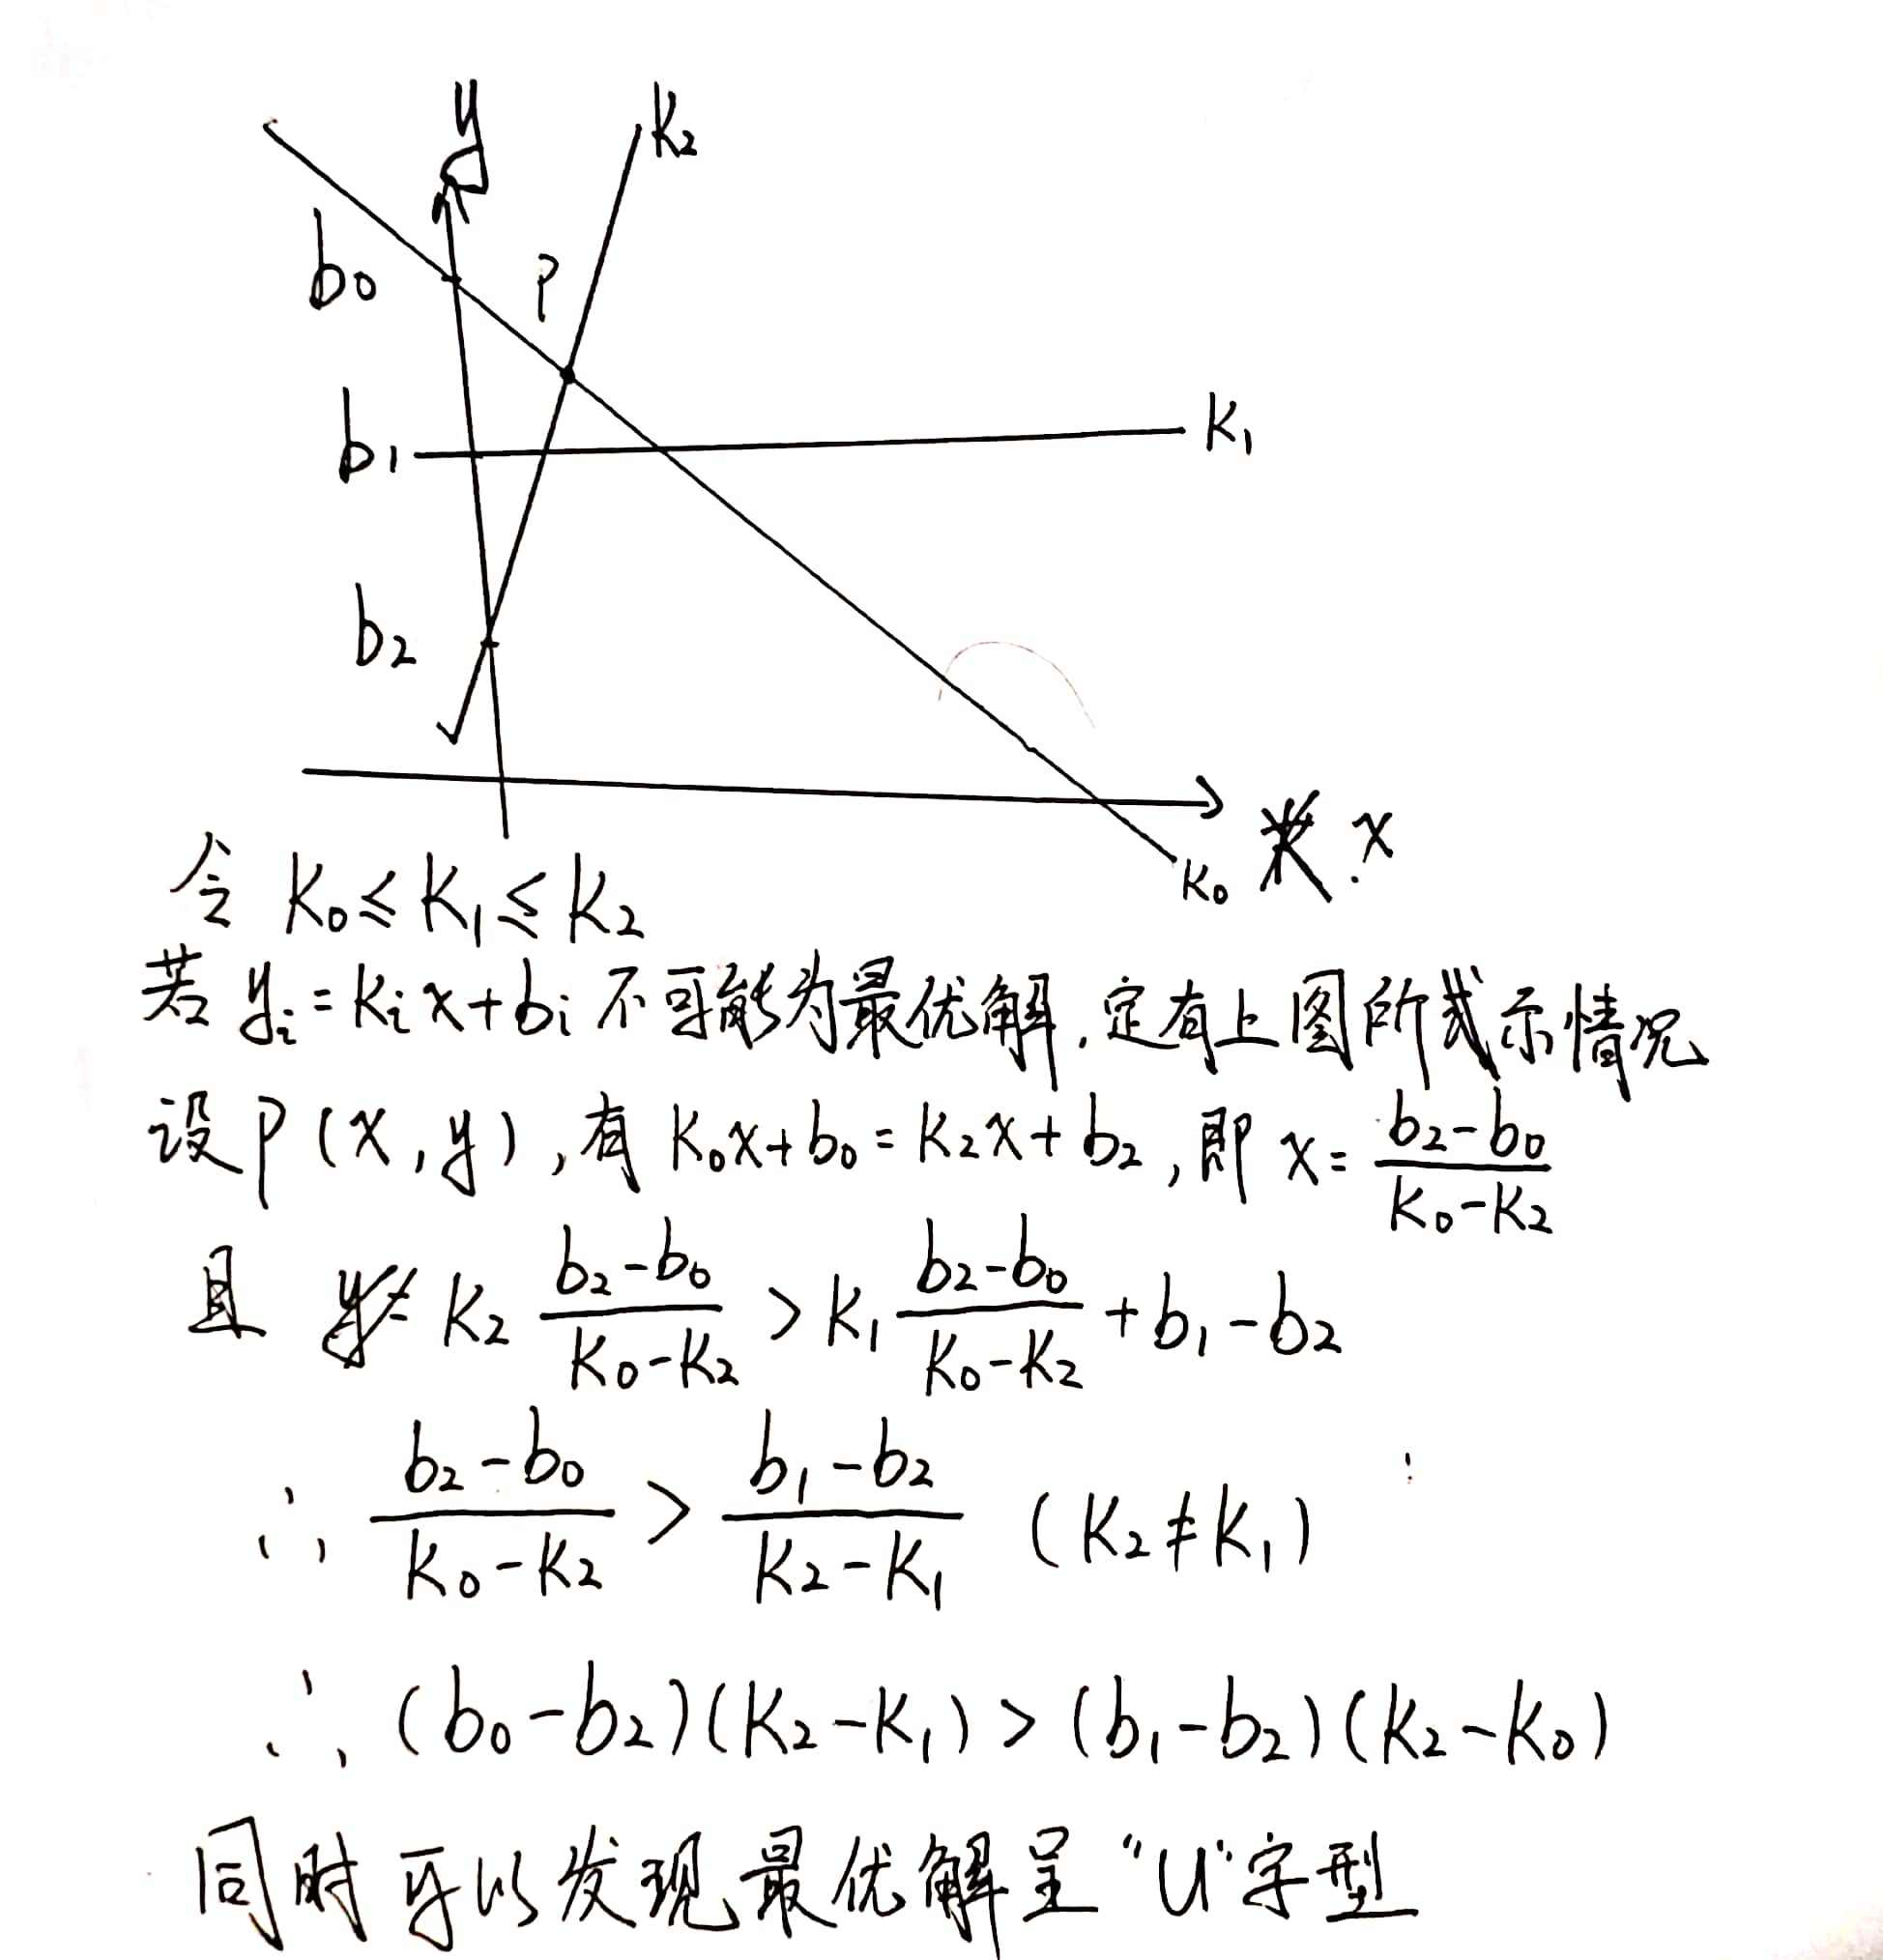 y
k₂
b₀
P
b₁
k₁
b₂
k₀
x
令 k₀≤k₁≤k₂
若 yᵢ=kᵢx+bᵢ 不可能为最优解,定有上图所示情况
设P(x,y),有 k₀x+b₀=k₂x+b₂,即 x=(b₂-b₀)/(k₀-k₂)
且 k₂ (b₂-b₀)/(k₀-k₂) > k₁ (b₂-b₀)/(k₀-k₂) +b₁-b₂
∴ (b₂-b₀)/(k₀-k₂) > (b₁-b₂)/(k₂-k₁) (k₂≠k₁)
∴ (b₀-b₂)(k₂-k₁)>(b₁-b₂)(k₂-k₀)
同时可以发现最优解呈“U”字型